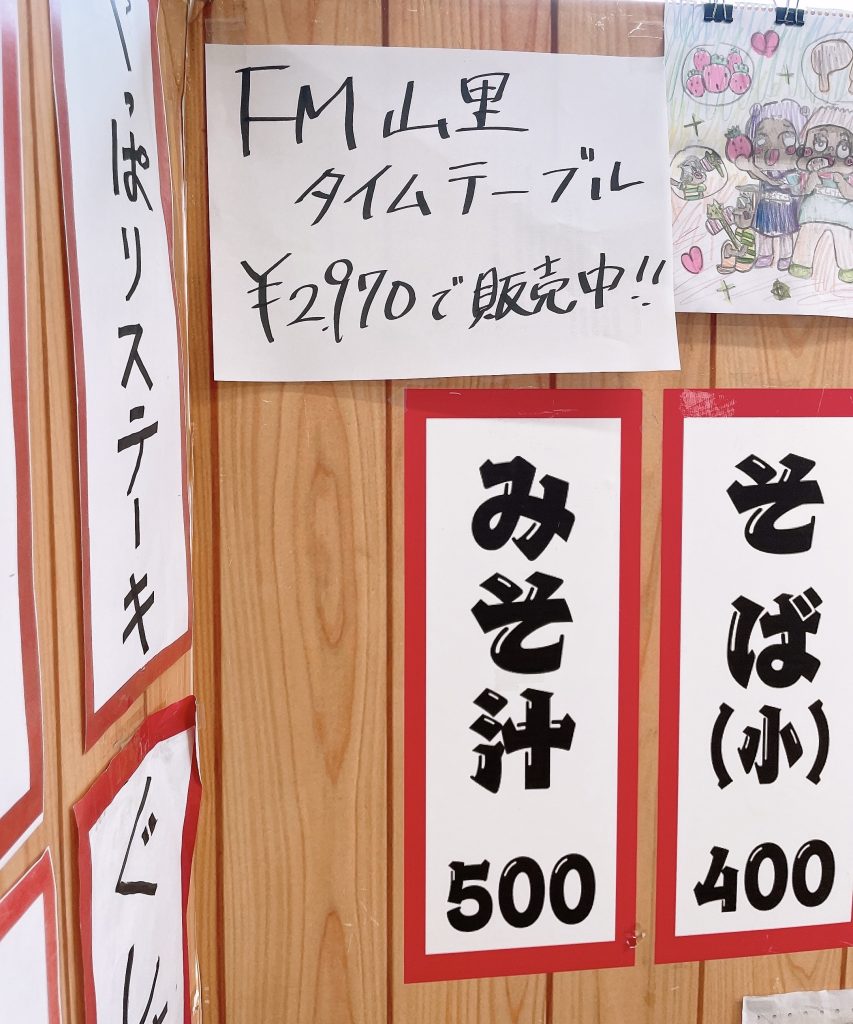 FM山里
タイムテーブル
¥2,970で販売中!!
やっぱりステーキ
みそ汁
500
そば(小)
400